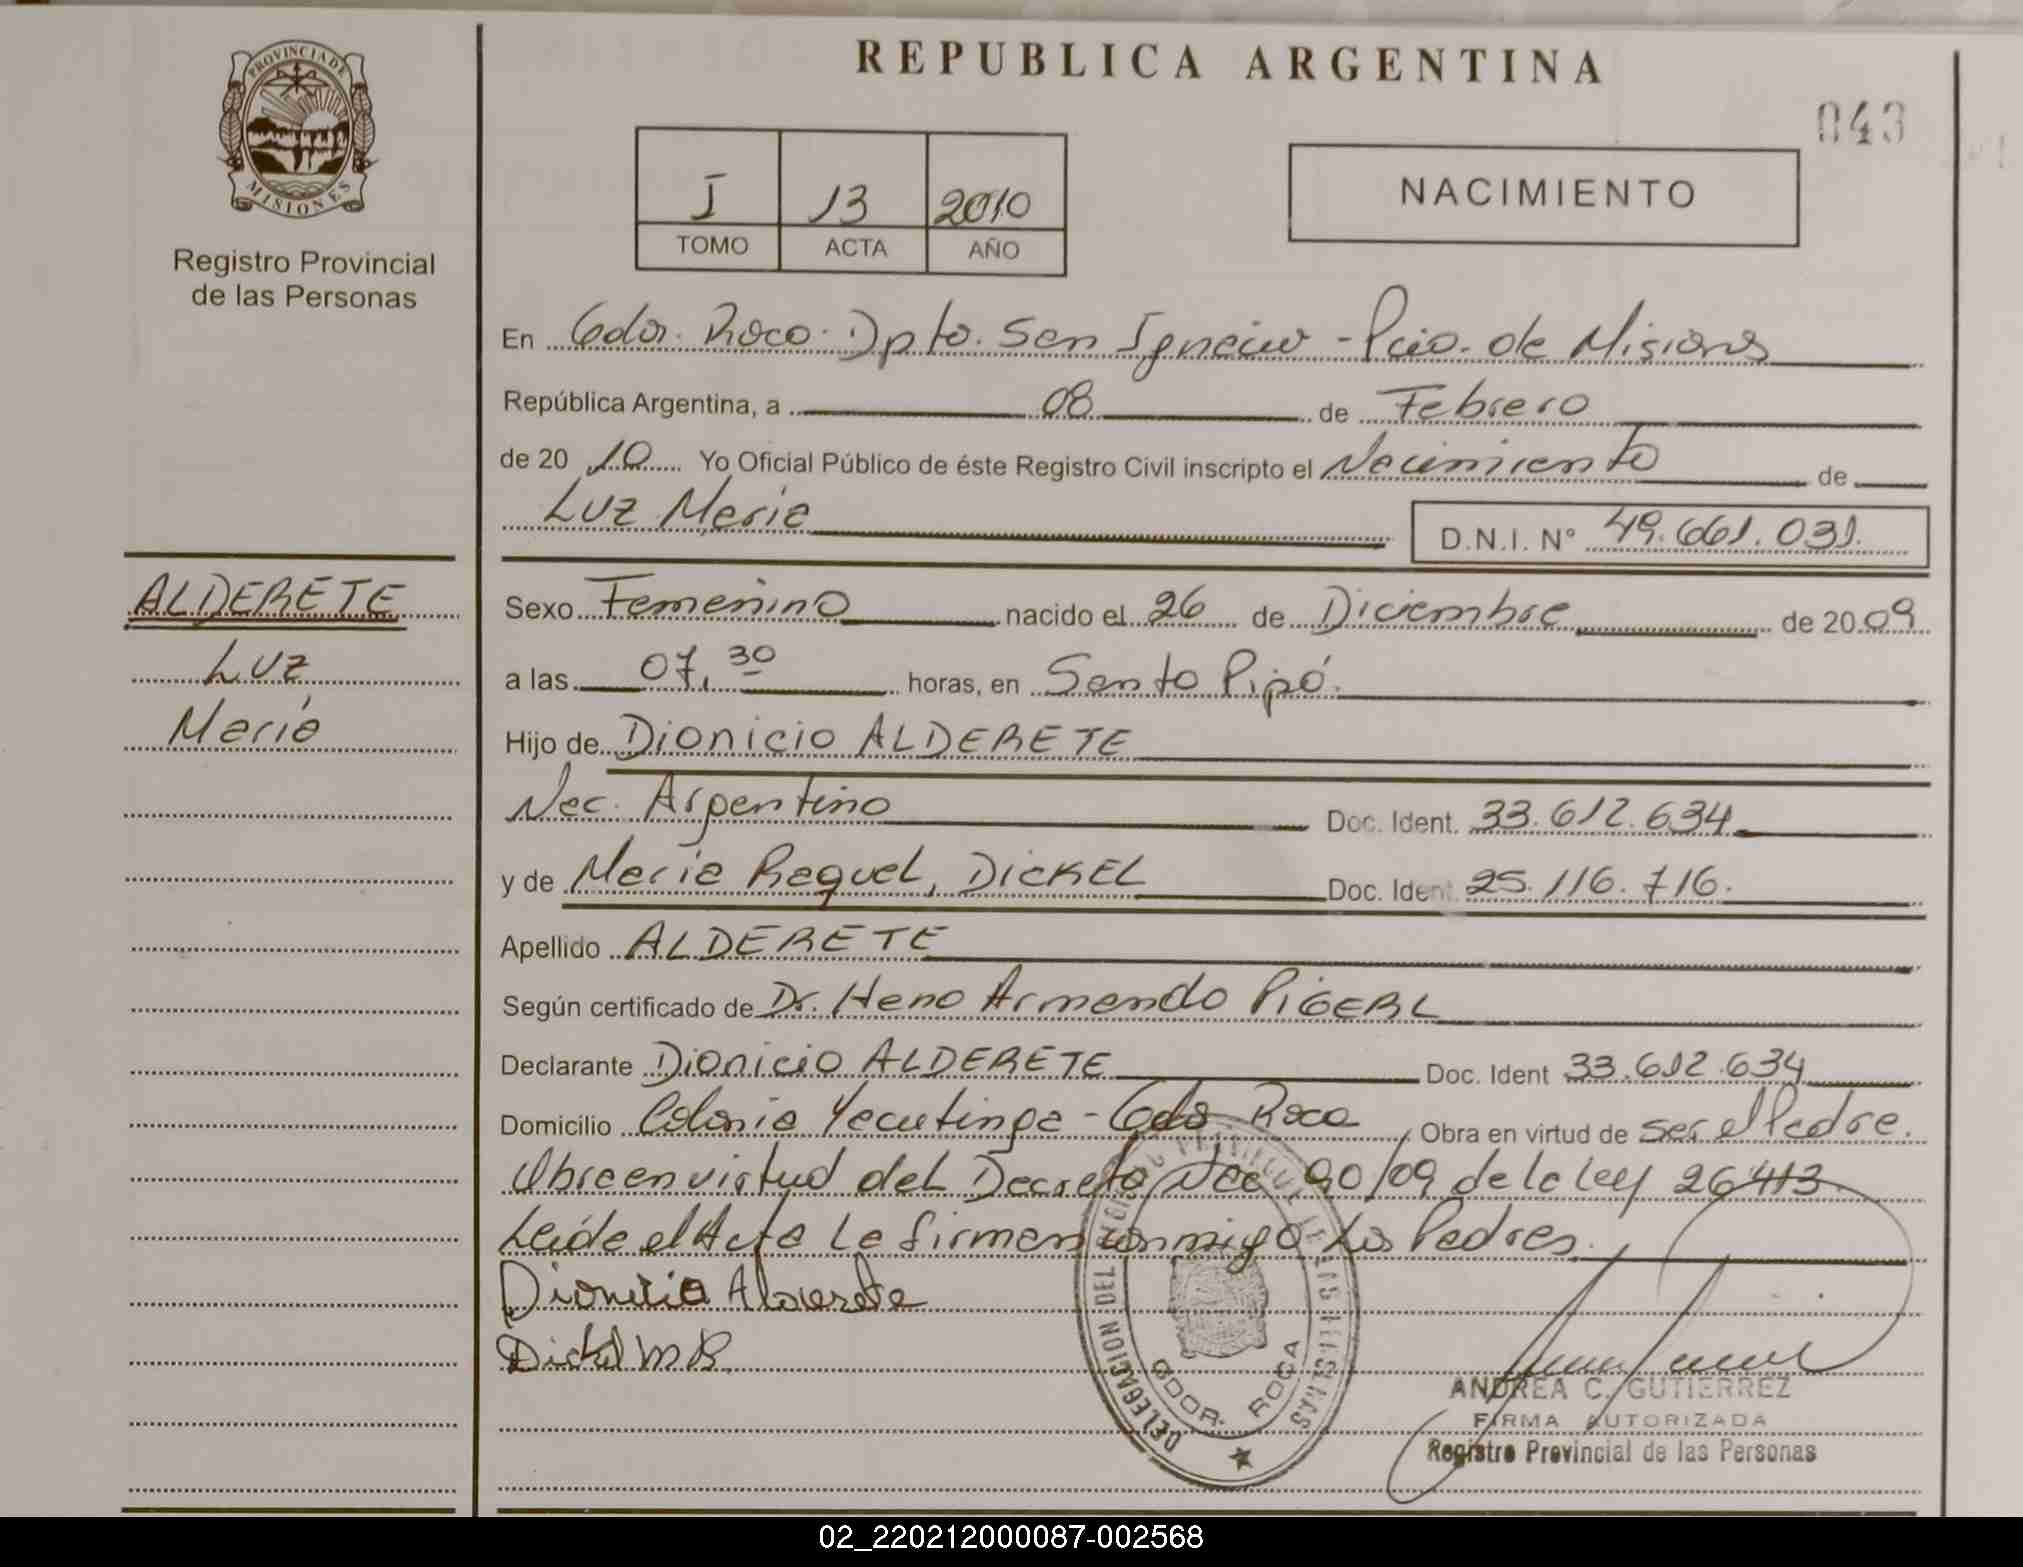 REPUBLICA ARGENTINA
043
PROVINCIA DE
MISIONES
Registro Provincial
de las Personas
I 13 2010
TOMO ACTA AÑO
NACIMIENTO
En Gdor. Roca. Dpto. San Ignacio - Pcia. de Misiones
República Argentina, a 08 de Febrero
de 20 10 Yo Oficial Público de éste Registro Civil inscripto el Nacimiento de
Luz María D.N.I. N° 49.661.031.
ALDERETE
Luz
María
Sexo Femenino nacido el 26 de Diciembre de 20 09
a las 07,30 horas, en Santo Pipó.
Hijo de Dionicio ALDERETE
Nac. Argentino Doc. Ident. 33.612.634
y de María Raquel, DICKEL Doc. Ident. 25.116.716.
Apellido ALDERETE
Según certificado de Dr. Heno Armando PIGERL
Declarante Dionicio ALDERETE Doc. Ident 33.612.634
Domicilio Colonia Yacutinga - Gdor Roca Obra en virtud de ser el Padre.
Obra en virtud del Decreto Nac 90/09 de la Ley 26413
Leída el Acta La firman conmigo Los Padres.
Dionicio Alderete
Dickel M R.
DELEGACION DEL REGISTRO PROVINCIAL DE LAS PERSONAS
GDOR. ROCA
ANDREA C. GUTIERREZ
FIRMA AUTORIZADA
Registro Provincial de las Personas
02_220212000087-002568